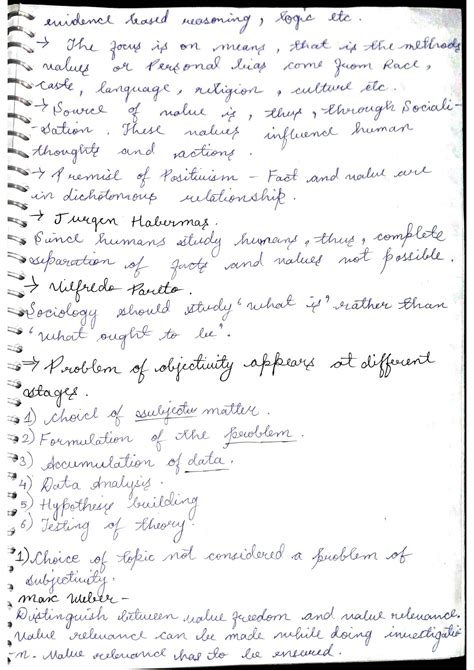 evidence based reasoning, logic etc.
→ The focus is on means, that is the methods
values or Personal bias come from Race,
caste, language, religion, culture etc.
→ Source of value is, thus, through Sociali-
-sation. These values influence human
thoughts and actions.
→ Premise of Positivism - Fact and value are
in dichotomous relationship.
→ Jurgen Habermas.
Since humans study humans, thus, complete
separation of facts and values not possible.
→ Vilfredo Pareto.
Sociology should study "what is" rather than
"what ought to be".
→ Problem of objectivity appears at different
stages.
1) choice of subject matter.
2) Formulation of the problem.
3) Accumulation of data.
4) Data Analysis.
5) Hypothesis building
6) Testing of theory.
1) Choice of topic not considered a problem of
subjectivity.
Max Weber -
Distinguish between value freedom and value relevance.
Value relevance can be made while doing investigatio-
n. Value relevance has to be ensured.